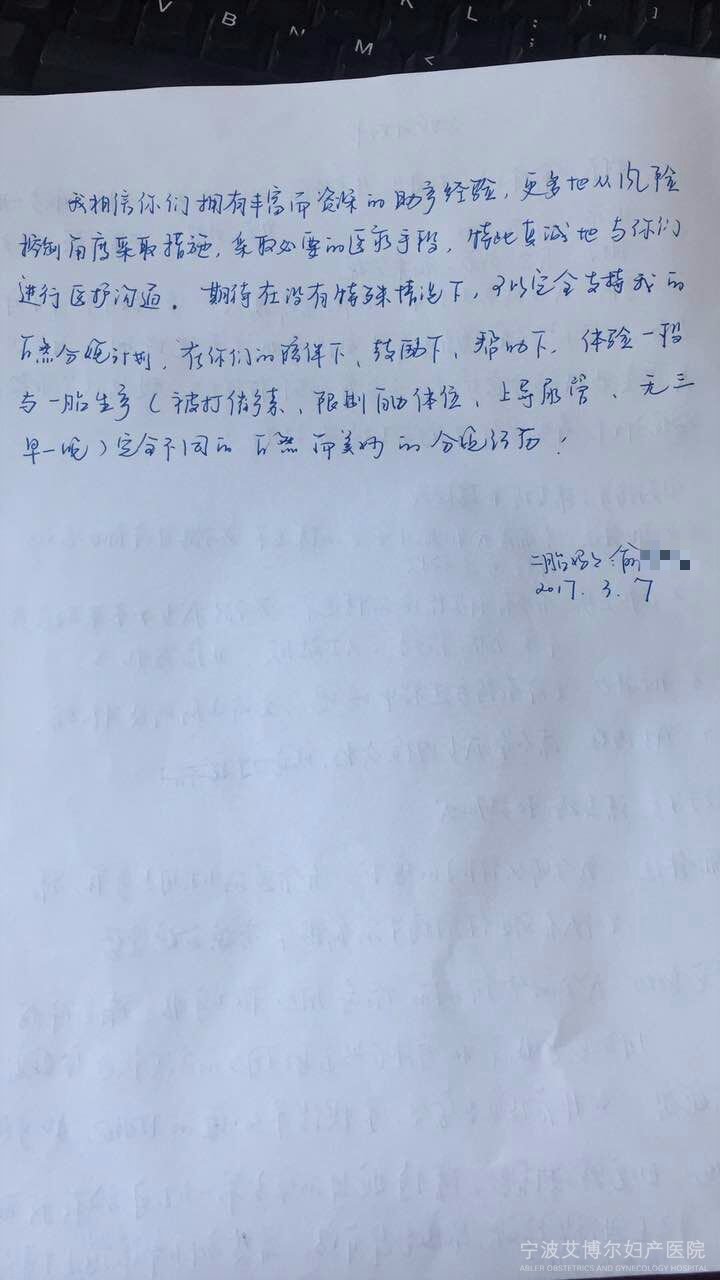 V B N M < L : ; > " ?
我相信你们拥有丰富而资深的助产经验，更多地从风险
控制角度采取措施，采取必要的医疗手段，特此真诚地与你们
进行医护沟通。期待在没有特殊情况下，可以完全支持我的
自然分娩计划，在你们的陪伴下、鼓励下、帮助下，体验一段
与一胎生产（被打催产素、限制自由体位、上导尿管、无三
早一晚）完全不同的自然而美妙的分娩经历！
二胎妈妈：俞
2017.3.7
宁波艾博尔妇产医院
ABLER OBSTETRICS AND GYNECOLOGY HOSPITAL